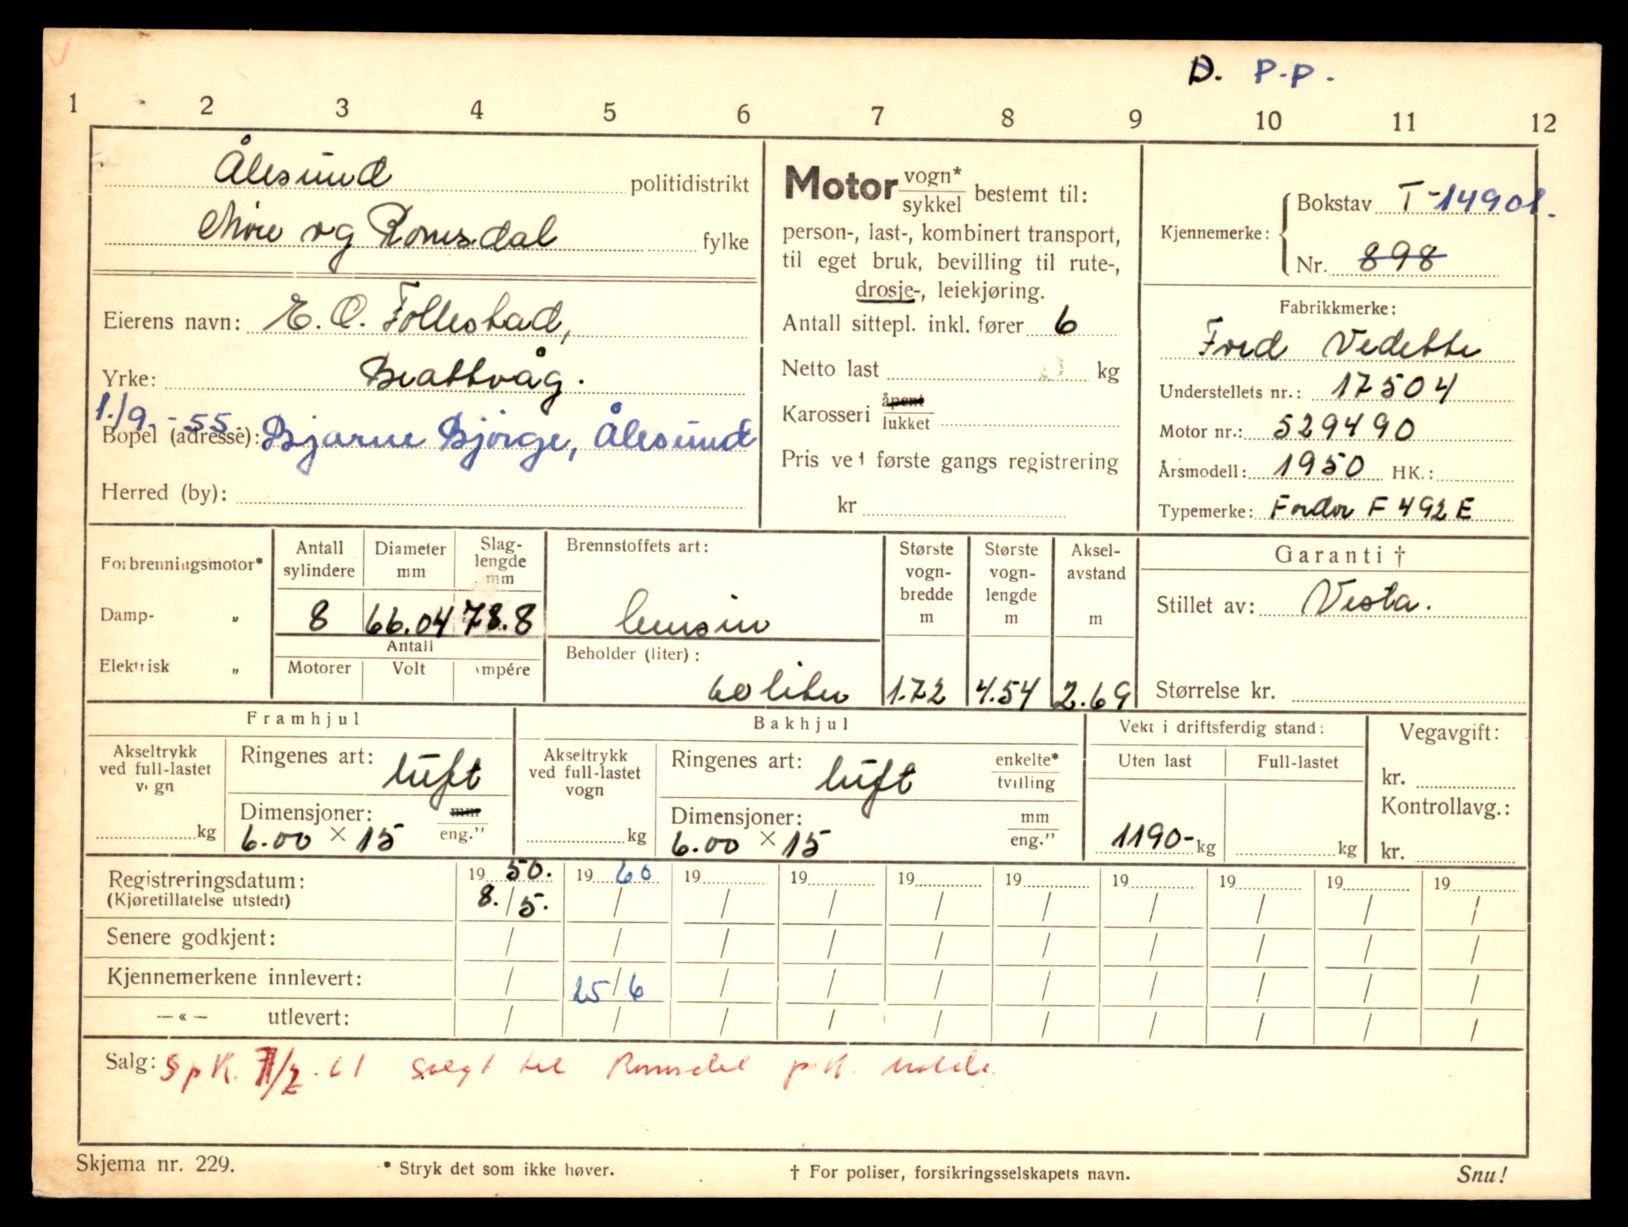 D. P.P.
1 2 3 4 5 6 7 8 9 10 11 12
Ålesund politidistrikt
Møre og Romsdal fylke
Eierens navn: E. O. Follestad,
Yrke: Brattvåg.
1./9. - 55.
Bopel (adresse): Bjarne Bjørge, Ålesund
Herred (by):
Motor vogn* sykkel bestemt til:
person-, last-, kombinert transport,
til eget bruk, bevilling til rute-,
drosje-, leiekjøring.
Antall sittepl. inkl. fører 6
Netto last kg
Karosseri åpent lukket
Pris ved første gangs registrering
kr
Kjennemerke: Bokstav T-14901.
Nr. 898
Fabrikkmerke:
Ford Vedette
Understellets nr.: 17504
Motor nr.: 529490
Årsmodell: 1950 HK.:
Typemerke: Fordor F 492 E
Forbrenningsmotor*
Damp- „
Elektrisk „
Antall sylindere
8
Diameter mm
66.04
Slaglengde mm
78.8
Antall
Motorer Volt Ampére
Brennstoffets art:
bensin
Beholder (liter):
60 liter
Største vogn-bredde m
1.72
Største vogn-lengde m
4.54
Aksel-avstand m
2.69
Garanti †
Stillet av: Vesta.
Størrelse kr.
Framhjul
Akseltrykk ved full-lastet vogn
kg
Ringenes art: luft
Dimensjoner: mm eng.”
6.00 × 15
Bakhjul
Akseltrykk ved full-lastet vogn
kg
Ringenes art: luft
enkelte* tvilling
Dimensjoner: mm eng.”
6.00 × 15
Vekt i driftsferdig stand:
Uten last Full-lastet
1190- kg kg
Vegavgift:
kr.
Kontrollavg.:
kr.
Registreringsdatum: 19 50. 19 60 19 19 19 19 19 19 19 19
(Kjøretillatelse utstedt) 8./5. / / / / / / / / /
Senere godkjent: / / / / / / / / / /
Kjennemerkene innlevert: / 25/6 / / / / / / / /
—«— utlevert: / / / / / / / / / /
Salg: Spk. 7/2. 61 solgt til Romsdal p.k. Molde.
Skjema nr. 229.
* Stryk det som ikke høver.
† For poliser, forsikringsselskapets navn.
Snu!